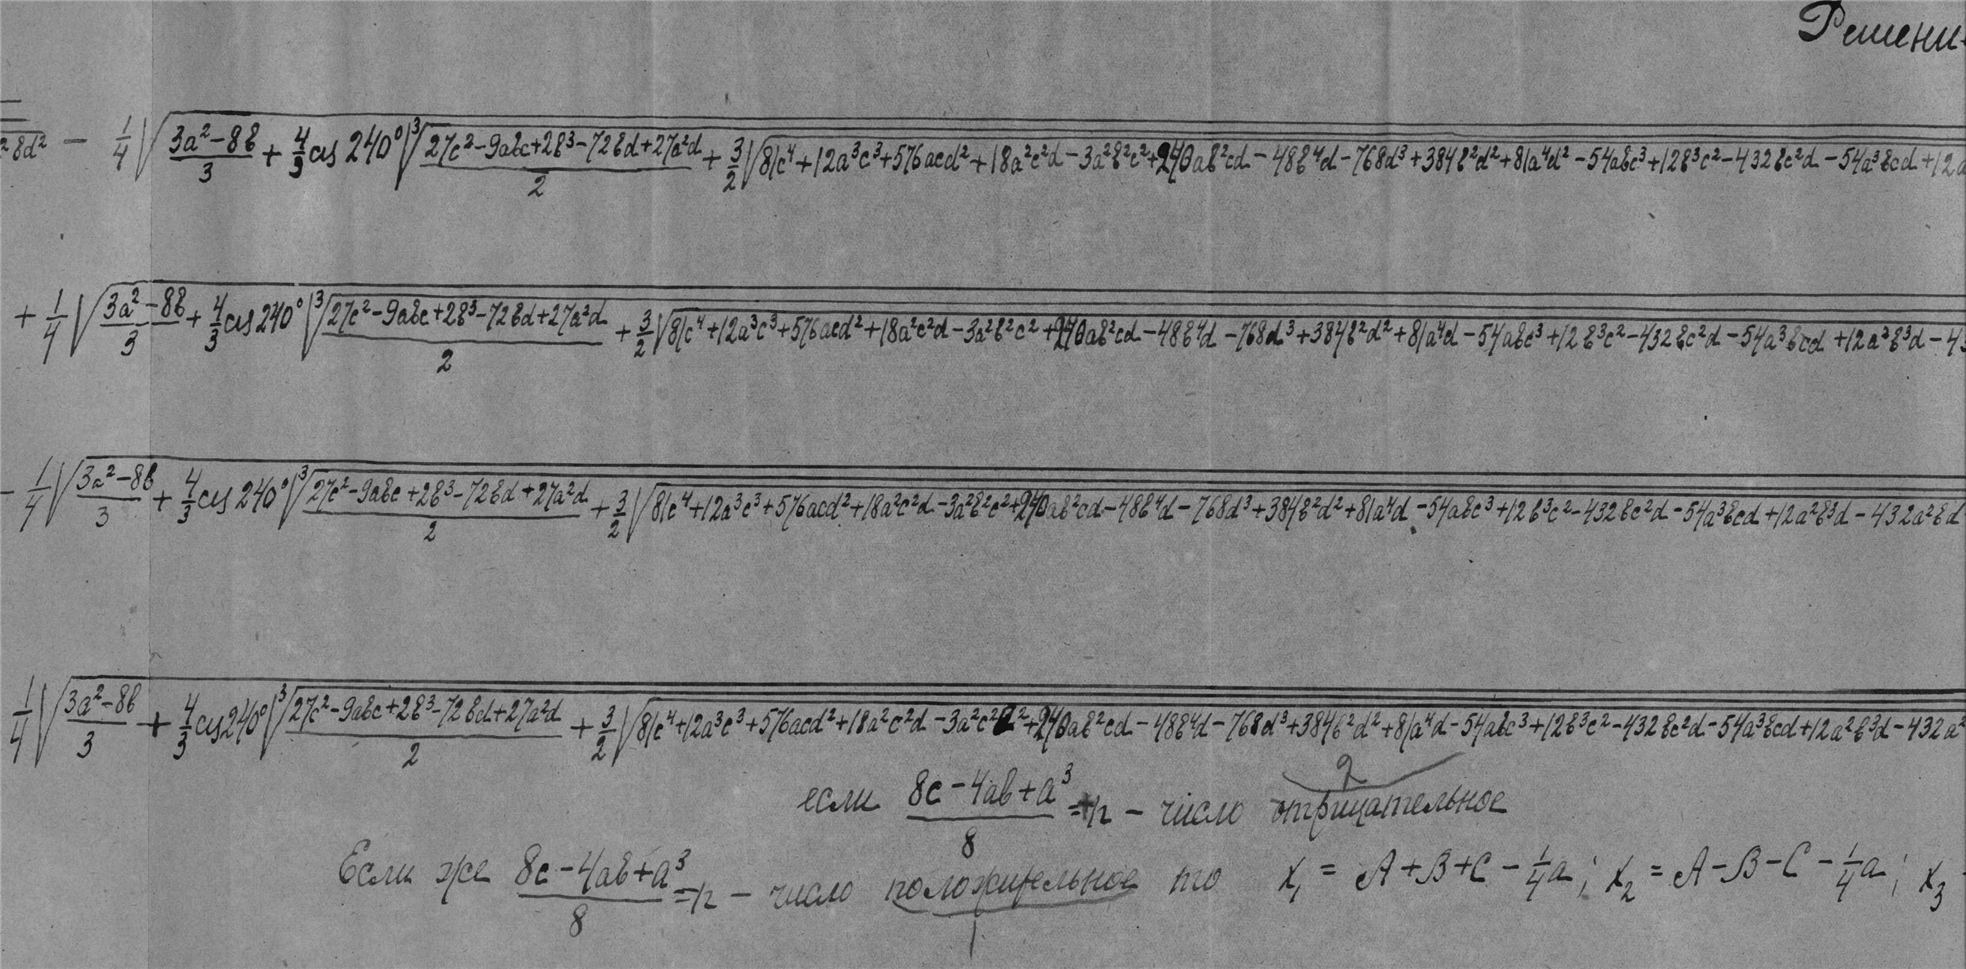 Решени
²8d² − 1/4 √ (3a²−8b)/3 + 4/3 cis 240° ∛ (27c²−9abc+2b³−72bd+27a²d)/2 + 3/2 √ 81c⁴+12a³c³+576acd²+18a²c²d−3a²b²c²+240ab²cd−48b⁴d−768d³+384b²d²+81a⁴d²−54abc³+12b³c²−432bc²d−54a³bcd+12a
+ 1/4 √ (3a²−8b)/3 + 4/3 cis 240° ∛ (27c²−9abc+2b³−72bd+27a²d)/2 + 3/2 √ 81c⁴+12a³c³+576acd²+18a²c²d−3a²b²c²+240ab²cd−48b⁴d−768d³+384b²d²+81a⁴d−54abc³+12b³c²−432bc²d−54a³bcd+12a²b³d−43
− 1/4 √ (3a²−8b)/3 + 4/3 cis 240° ∛ (27c²−9abc+2b³−72bd+27a²d)/2 + 3/2 √ 81c⁴+12a³c³+576acd²+18a²c²d−3a²b²c²+240ab²cd−48b⁴d−768d³+384b²d²+81a⁴d−54abc³+12b³c²−432bc²d−54a³bcd+12a²b³d−432a²bd
1/4 √ (3a²−8b)/3 + 4/3 cis 240° ∛ (27c²−9abc+2b³−72bd+27a²d)/2 + 3/2 √ 81c⁴+12a³c³+576acd²+18a²c²d−3a²c²b²+240ab²cd−48b⁴d−768d³+384b²d²+81a⁴d−54abc³+12b³c²−432bc²d−54a³bcd+12a²b³d−432a²
2
если (8c−4ab+a³)/8 = n − число отрицательное
Если же (8c−4ab+a³)/8 = n − число положительное то x₁ = A+B+C−1/4a; x₂ = A−B−C−1/4a; x₃
1